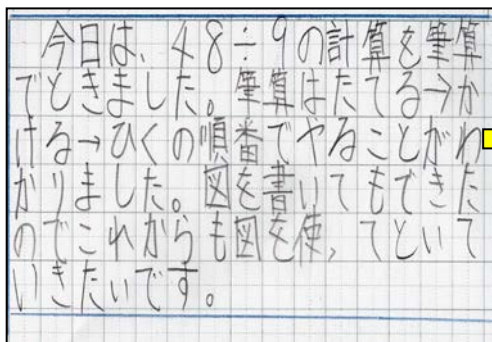 今日は、48÷9の計算を筆算
でときました。筆算はたてる→か
ける→ひくの順番でやることがわ
かりました。図を書いてもできた
のでこれからも図を使ってといて
いきたいです。